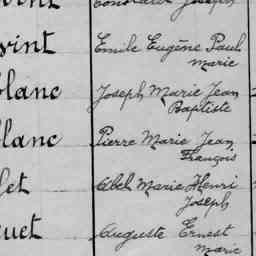 Joseph
vint Emile Eugène Paul
Marie
blanc Joseph Marie Jean
Baptiste
blanc Pierre Marie Jean
François
Abel Marie Henri
Joseph
uet Auguste Ernest
Marie